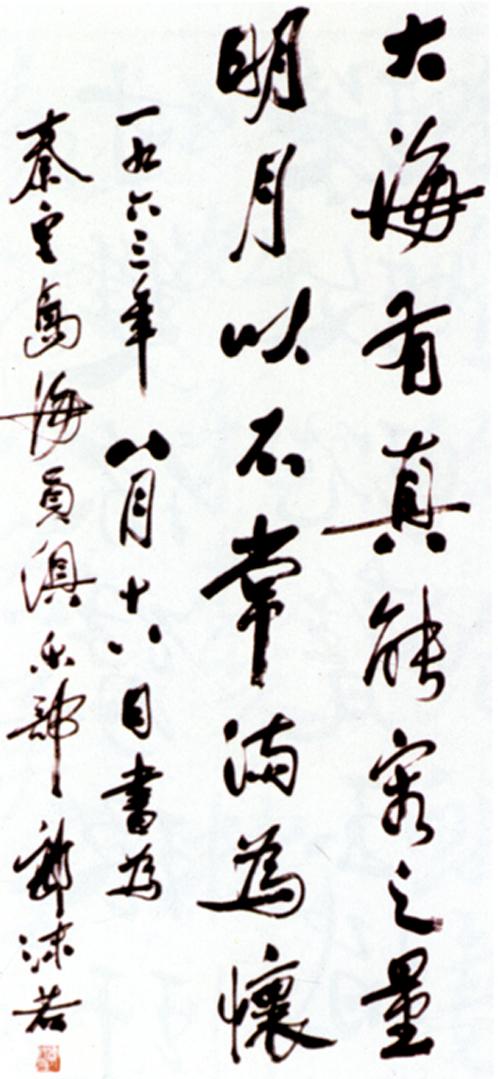 大海有真能容之量
明月以不常满為懷
一九六三年八月十八日書为
秦皇島海員俱乐部 郭沫若